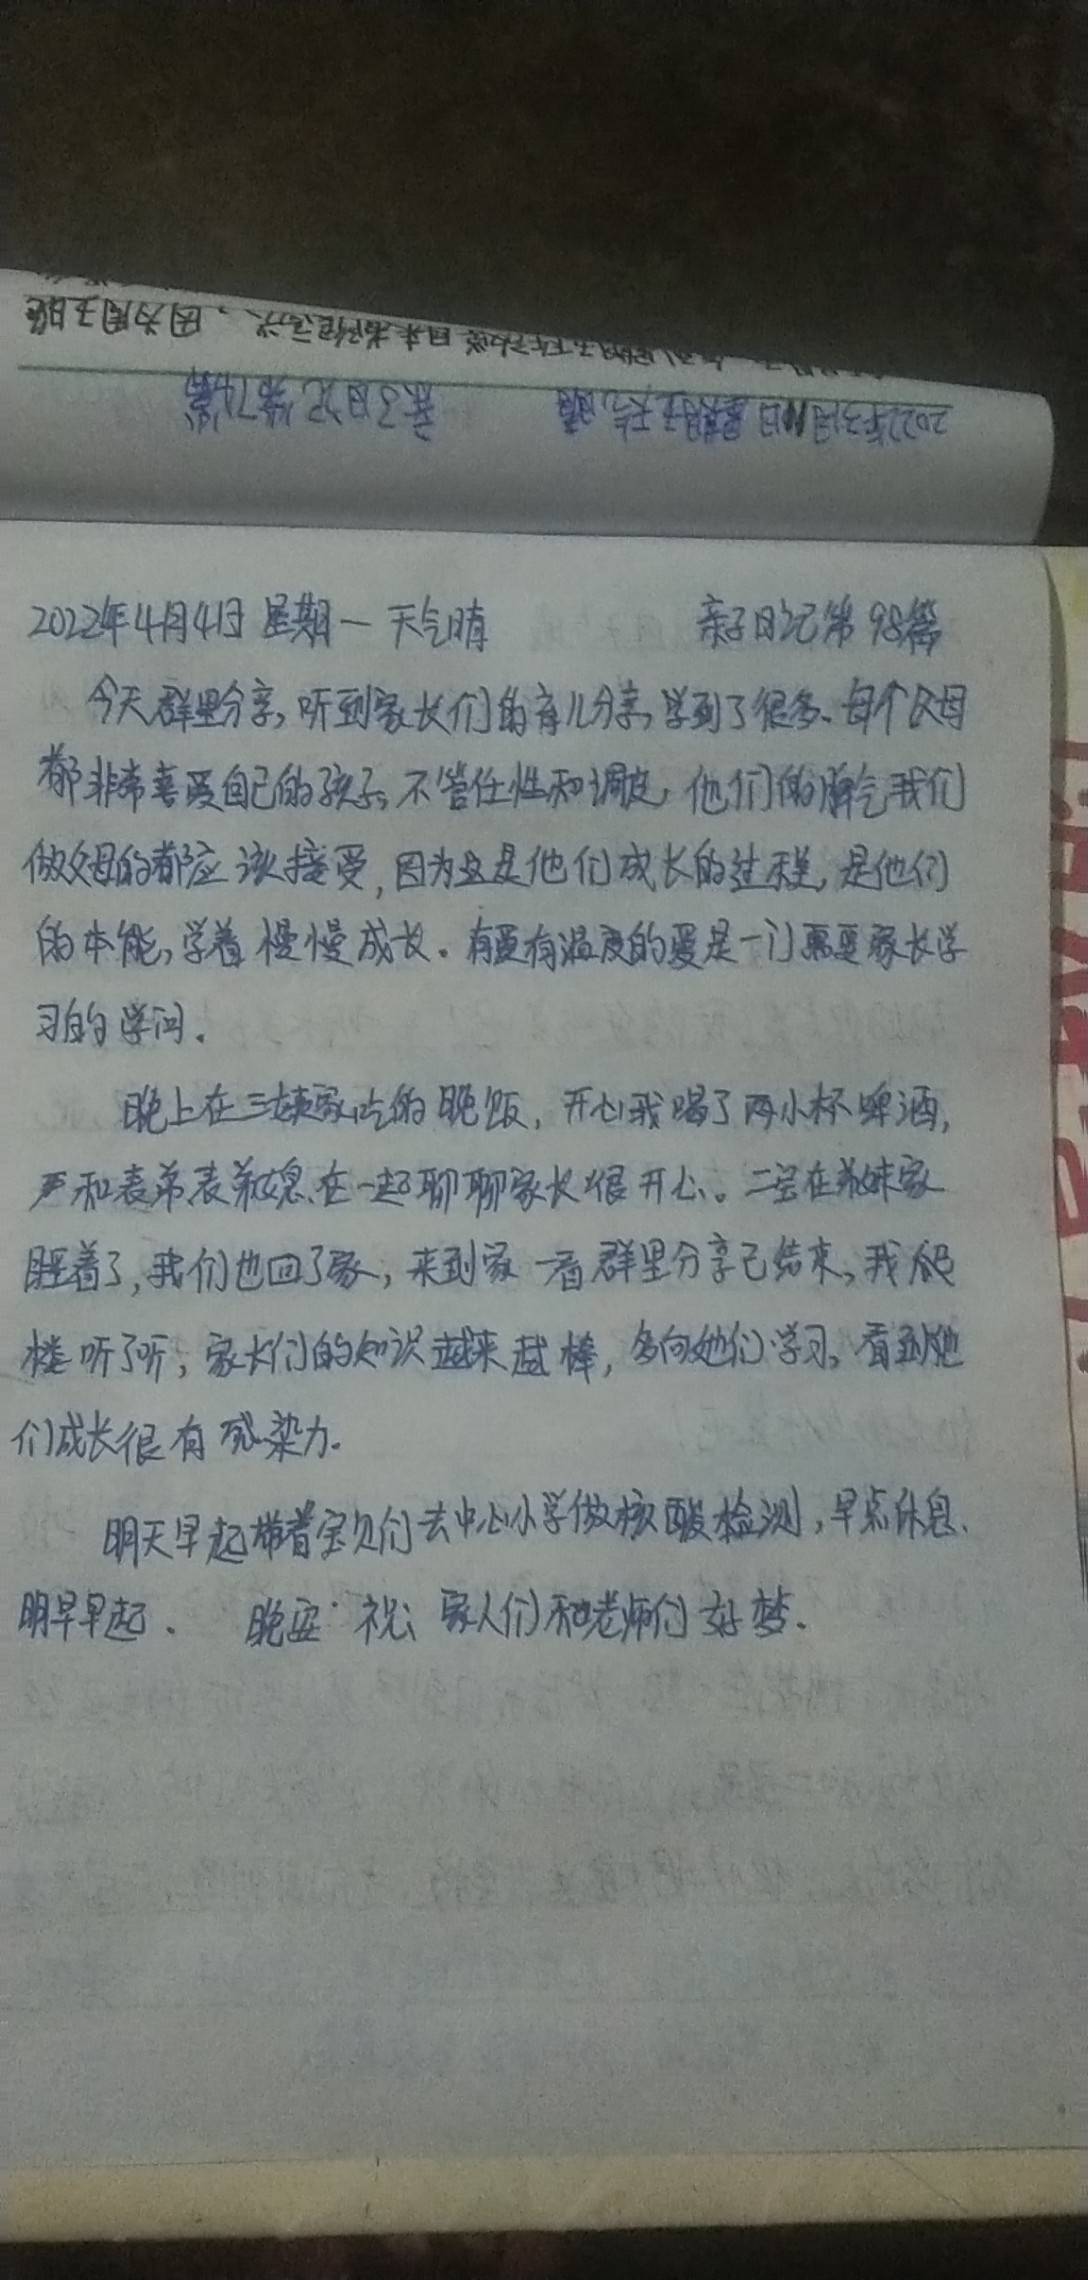 2022年3月11日 星期五 天气晴 亲子日记 第74篇
2022年4月4日 星期一 天气晴 亲子日记第98篇
今天群里分享,听到家长们的育儿分享,学到了很多、每个父母
都非常喜爱自己的孩子,不管任性和调皮,他们的脾气我们
做父母的都应该接受,因为这是他们成长的过程,是他们
的本能,学着慢慢成长。有爱有温度的爱是一门需要家长学
习的学问.
晚上在三姨家吃的晚饭,开心我喝了两小杯啤酒,
和表弟表弟媳在一起聊聊家长很开心。二宝在弟妹家
睡着了,我们也回了家,来到家一看群里分享已结束,我爬
楼听了听,家长们的知识越来越棒,多向她们学习,看到她
们成长很有感染力.
明天早起带着宝贝们去中心小学做核酸检测,早点休息、
明早早起. 晚安·祝:家人们和老师们好梦.